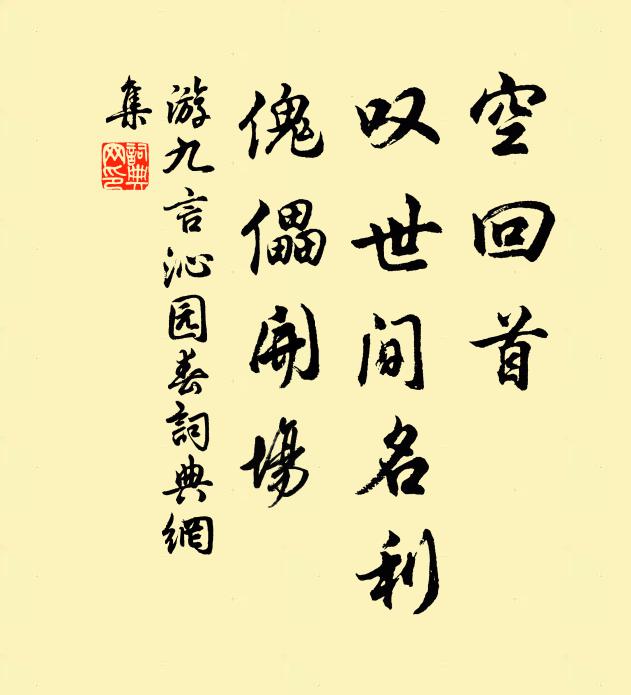 空回首
叹世间名利
傀儡開場
游九言沁园春詞典網
集
詞典
网印